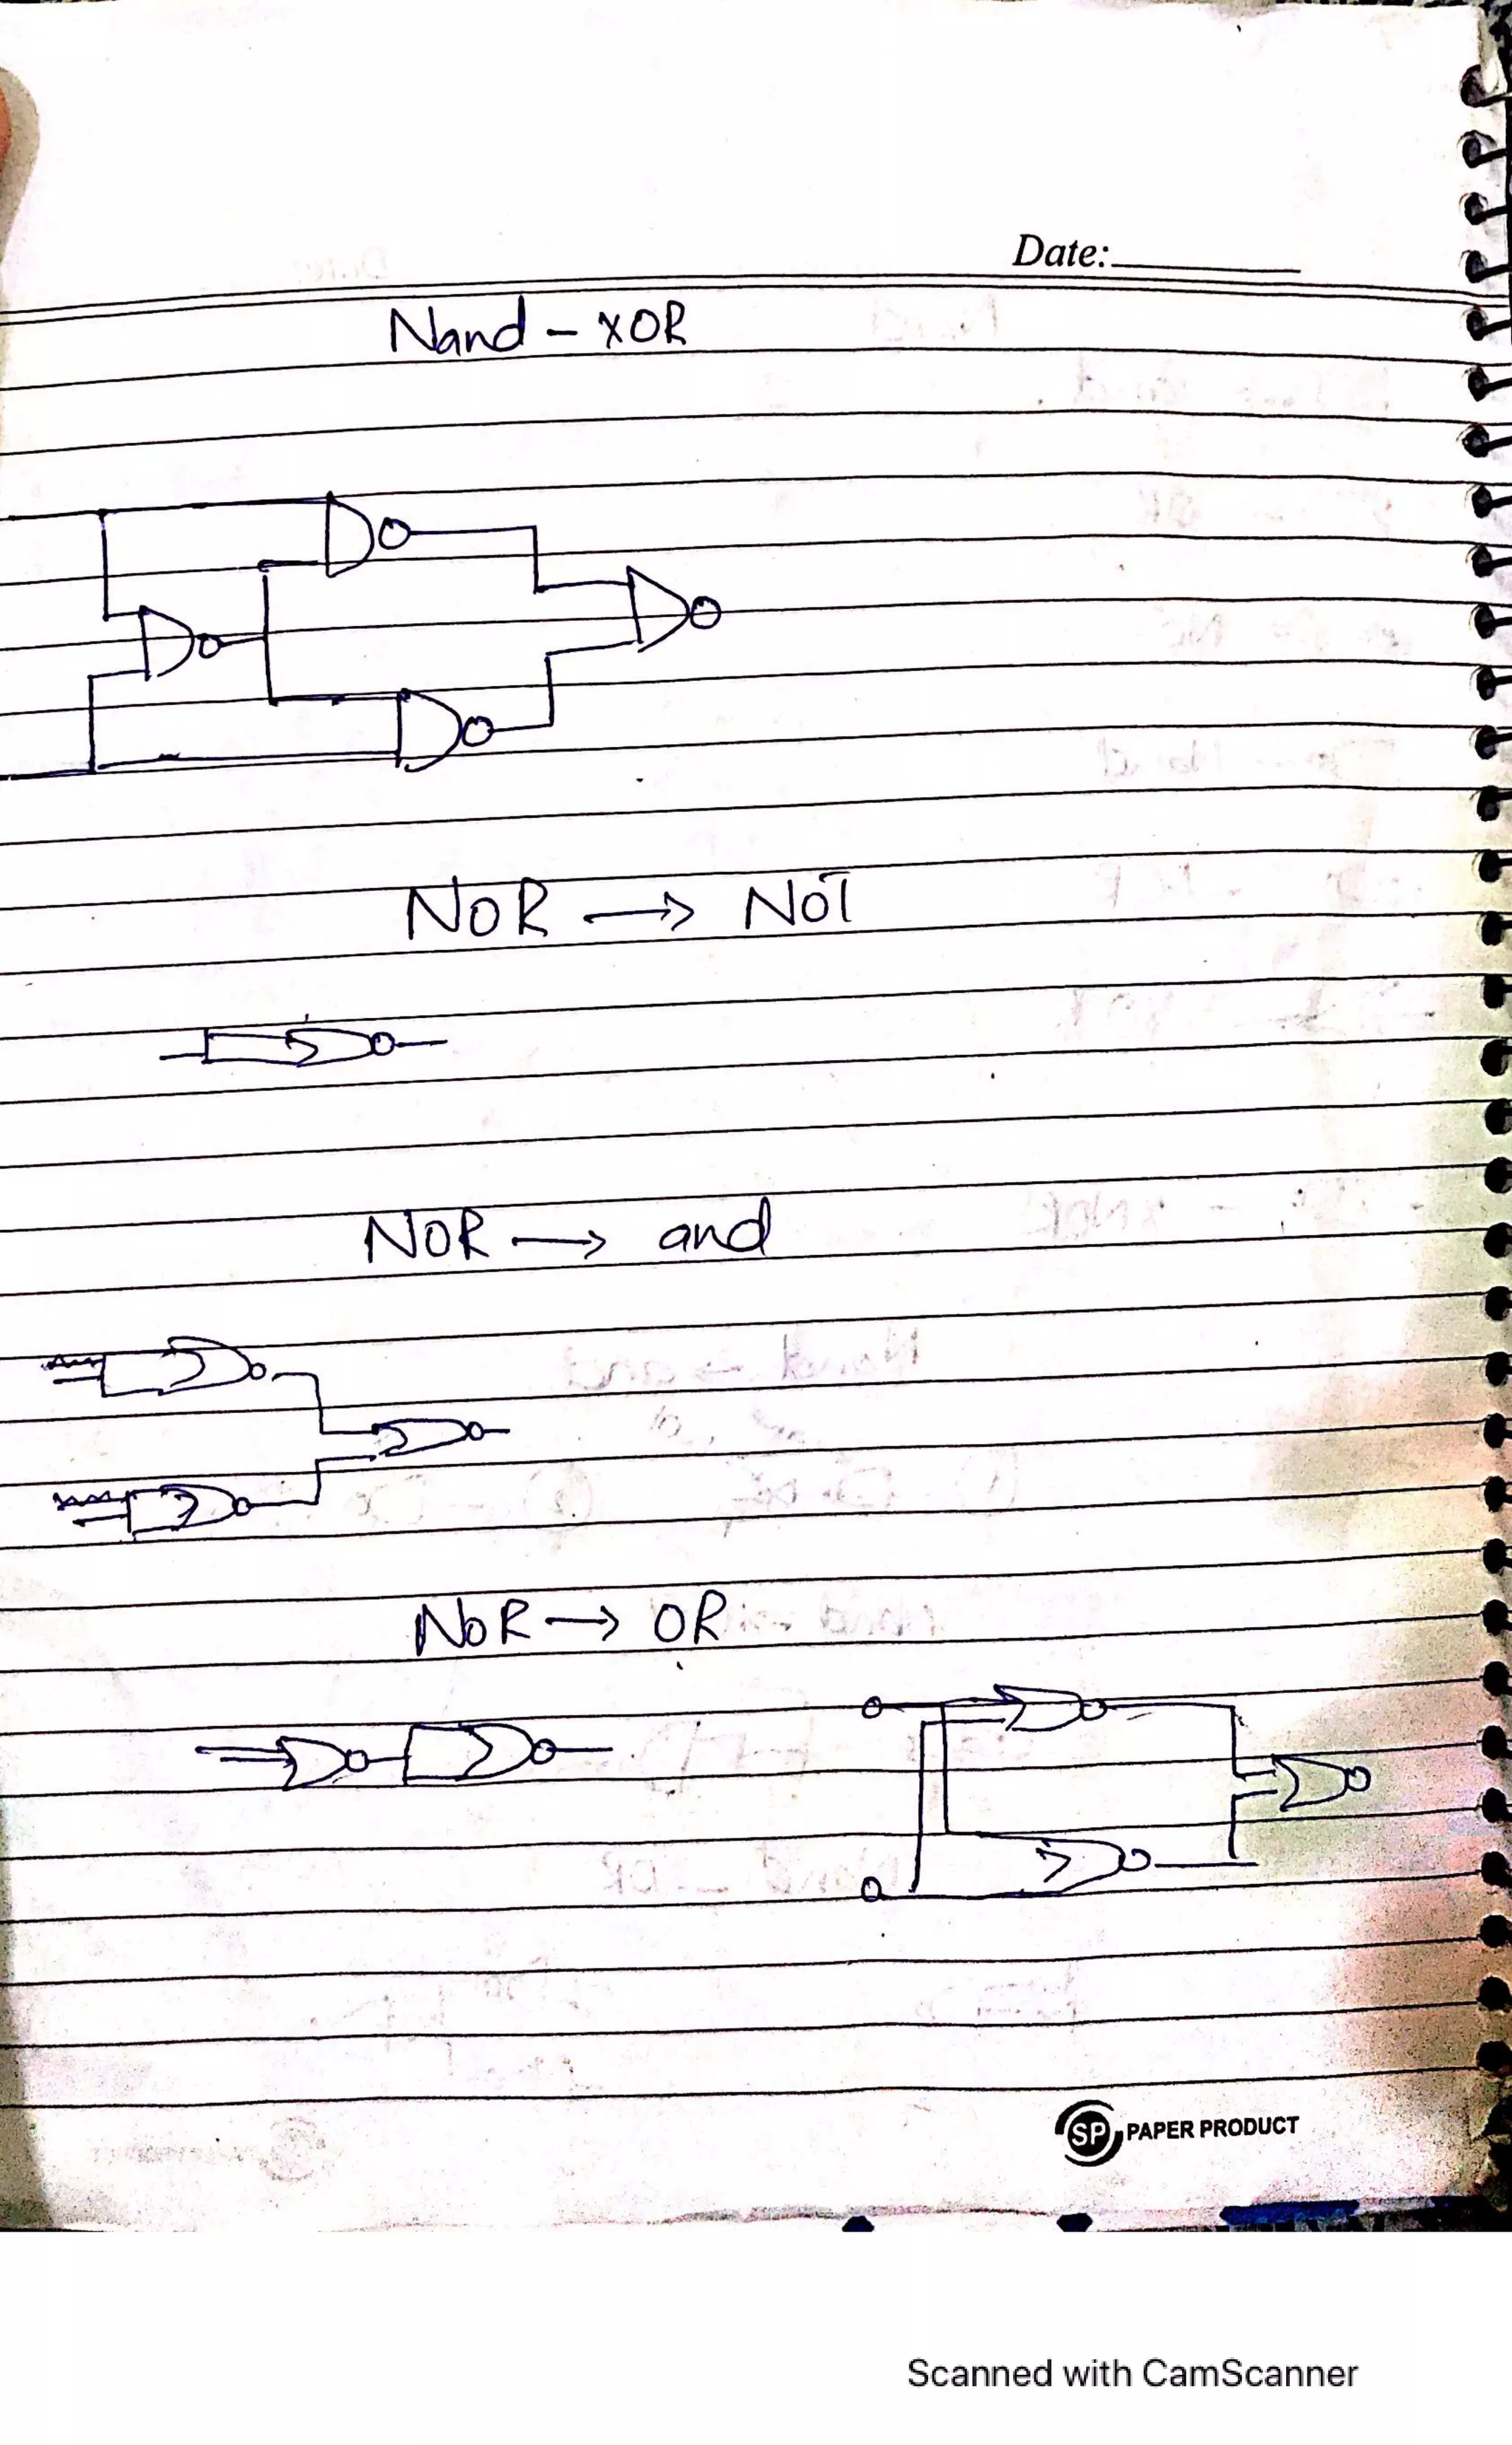 Date:
Nand - XOR
NOR → NOT
NOR → and
NOR → OR
SP PAPER PRODUCT
Scanned with CamScanner